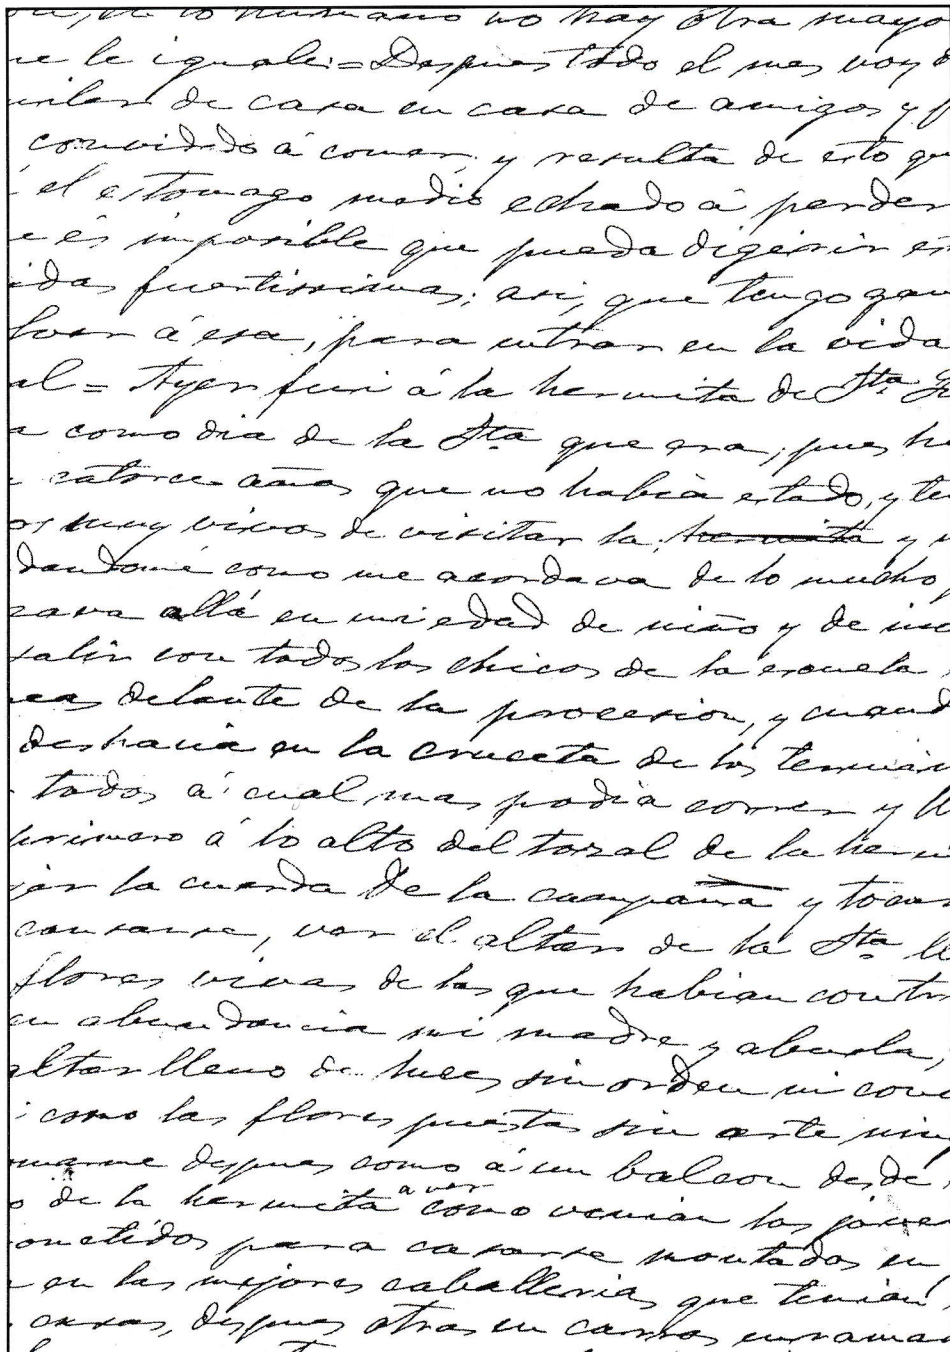 de lo humano no hay otra mayo
le iguale = Despues todo el mes voy
de casa en casa de amigos y
convidado á comer y resulta de esto qu
el estomago medio echado á perder
és imposible que pueda digerir es
idas fuertissimas; asi, que tengo gan
á esa, para entrar en la vida
al = Ayer fui á la hermita de Sta
a como dia de la Sta que era, pues h
catorce años que no habia estado, y te
os muy vivos de visitar la hermita y
dandome como me acordava de lo mucho
zava allá en mi edad de niño y de
salir con todos los chicos de la escuela
delante de la procesion, y cuand
deshacia en la cruceta de los termin
todos á cual mas podia correr y ll
primero á lo alto del tozal de la herm
jar la cuerda de la campana y tocar
cansarse, ver el altar de la Sta ll
flores vivas de las que habian
en abundancia mi madre y abuela,
altar lleno de luces sin orden ni
como las flores puestas sin arte nin
marme despues como á un balcon desde
o de la hermita a ver como venian los joven
ometidos para casarse montados en
en las mejores caballerias que tenian
casas, despues otros en carros enrama